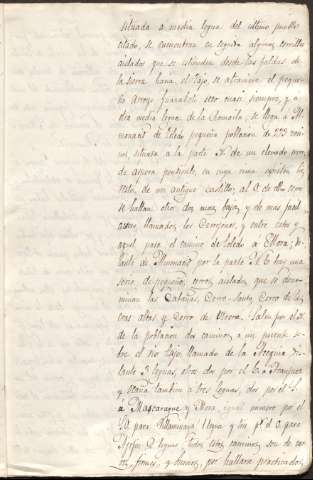 situada a media legua del ultimo pueblo
citado, se encuentran en seguida algunos cerrillos
aislados que se estienden desde las faldas de
la sierra hacia el Tajo, se atraviesa el peque-
ño arroyo Guaraboli seco casi siempre, y a
otra media legua de la                se llega a Al-
monacid de Toledo pequeña poblacion de 223 veci-
nos, situada a la parte N. de un elevado cerro,
de aspera pendiente, en cuya cima ecsisten los
restos de un antiguo castillo; al O. de dho cerro
se hallan otros dos mas bajos, y de mas facil
acceso, llamados los Cerrojones, y entre estos y
aquel pasa el camino de Toledo a Mora; de-
lante de Almonacid por la parte del E. hay una
serie de pequeños cerros aislados que se deno-
minan las Cabañas, Cerro-Santo, Cerro de la
  altas, y Cerro de Utrera. Salen por el N.
de la poblacion dos caminos, a un puente so-
bre el rio Tajo, llamado de la Acequia dis-
tante 3 leguas, otros dos por el E. a Aranjuez
y Ocaña tambien a tres leguas, dos por el S.
a Mascaraque y Mora, igual numero por el
O. para Villaminaya,           y los            para
          2 leguas. Todos estos caminos son de car-
ros, firmes, y buenos, por hallarse practicados